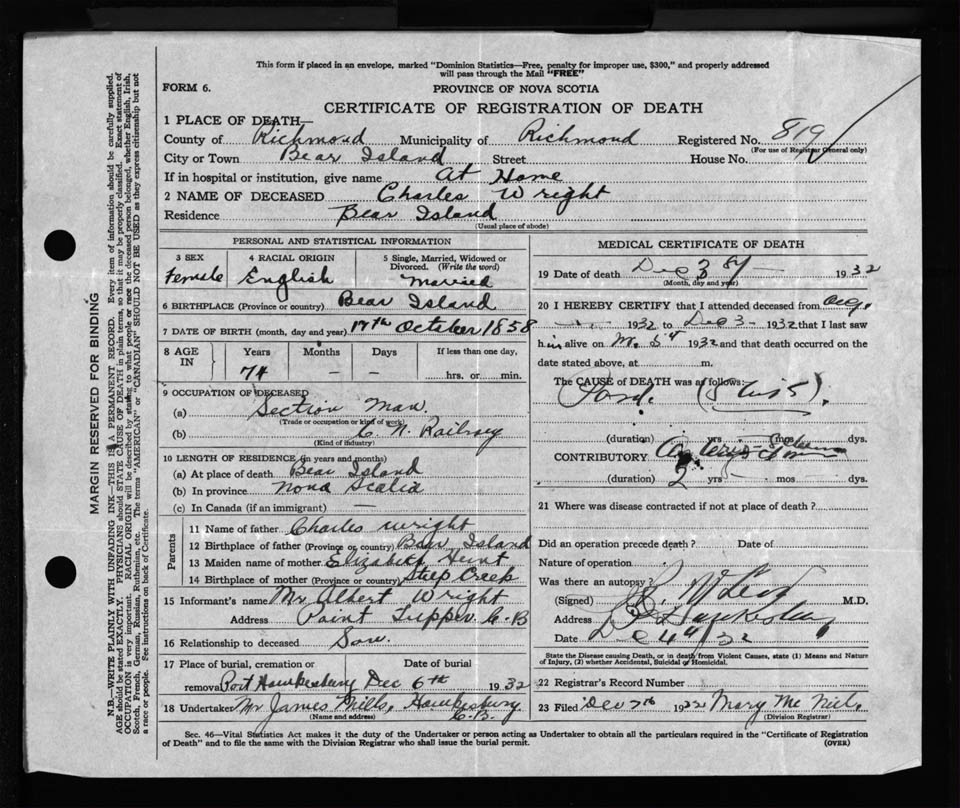 This form if placed in an envelope, marked "Dominion Statistics—Free, penalty for improper use, $300," and properly addressed
will pass through the Mail "FREE"
FORM 6.
PROVINCE OF NOVA SCOTIA
CERTIFICATE OF REGISTRATION OF DEATH
1 PLACE OF DEATH—
County of Richmond Municipality of Richmond Registered No. 819
(For use of Registrar General only)
City or Town Bear Island Street House No.
If in hospital or institution, give name At Home
2 NAME OF DECEASED Charles Wright
Residence Bear Island
(Usual place of abode)
PERSONAL AND STATISTICAL INFORMATION
3 SEX
Female
4 RACIAL ORIGIN
English
5 Single, Married, Widowed or
Divorced. (Write the word)
Married
6 BIRTHPLACE (Province or country) Bear Island
7 DATE OF BIRTH (month, day and year) 17th October 1858
8 AGE
IN
Years Months Days If less than one day,
74 – – hrs. or min.
9 OCCUPATION OF DECEASED
(a) Section Man.
(Trade or occupation or kind of work)
(b) C. N. Railway
(Kind of industry)
10 LENGTH OF RESIDENCE (in years and months)
(a) At place of death Bear Island
(b) In province Nova Scotia
(c) In Canada (if an immigrant) —
Parents
11 Name of father Charles Wright
12 Birthplace of father (Province or country) Bear Island
13 Maiden name of mother Elizabeth
14 Birthplace of mother (Province or country) Steep Creek
15 Informant's name Mr Albert Wright
Address Point Tupper C.B
16 Relationship to deceased Son.
17 Place of burial, cremation or Date of burial
removal Port Hawkesbury Dec 6th 1932
18 Undertaker Mr James Mills, Hawkesbury
(Name and address) C.B.
MEDICAL CERTIFICATE OF DEATH
19 Date of death Dec 3 1932
(Month, day and year)
20 I HEREBY CERTIFY that I attended deceased from Aug.
1932 to Dec 3 – 1932 that I last saw
him alive on 1932 and that death occurred on the
date stated above, at m.
The CAUSE of DEATH was as follows:
(duration) yrs mos dys.
CONTRIBUTORY
(duration) 2 yrs mos dys.
21 Where was disease contracted if not at place of death ?
Did an operation precede death ? Date of
Nature of operation
Was there an autopsy ?
(Signed) M.D.
Address
Date Dec 4th/32
State the Disease causing Death, or in death from Violent Causes, state (1) Means and Nature
of Injury, (2) whether Accidental, Suicidal or Homicidal.
22 Registrar's Record Number
23 Filed Dec 7th 1932 Mary Mc Neil,
(Division Registrar)
Sec. 46—Vital Statistics Act makes it the duty of the Undertaker or person acting as Undertaker to obtain all the particulars required in the "Certificate of Registration
of Death" and to file the same with the Division Registrar who shall issue the burial permit.
(OVER)
MARGIN RESERVED FOR BINDING
N.B.—WRITE PLAINLY WITH UNFADING INK—THIS IS A PERMANENT RECORD. Every item of information should be carefully supplied.
AGE should be stated EXACTLY. PHYSICIANS should STATE CAUSE OF DEATH in plain terms, so that it may be properly classified. Exact statement of
OCCUPATION is very important. RACIAL ORIGIN will be described by stating to what people or race the deceased person belonged, whether English, Irish,
Scotch, French, German, Russian, Ruthenian, etc. The terms "AMERICAN" or "CANADIAN" SHOULD NOT BE USED as they express citizenship but not
a race or people. See instructions on back of Certificate.